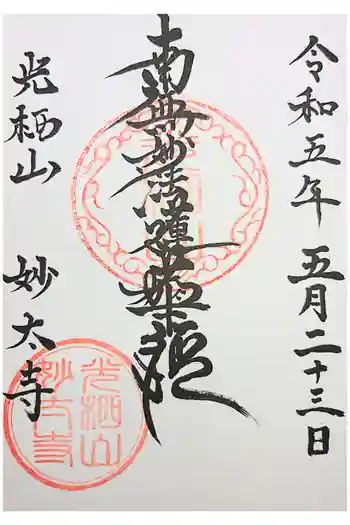 令和五年 五月二十三日
南無妙法蓮華経
光栖山 妙太寺
光栖山